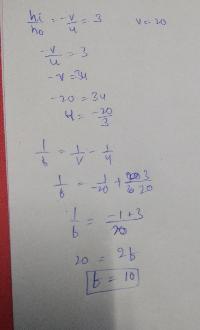 hi/ho = -v/u = 3 v = -20
-v/u = 3
-v = 3u
-20 = 3u
u = -20/3
1/f = 1/v - 1/u
1/f = 1/-20 + 3/20
1/f = -1+3/20
20 = 2f
f = 10